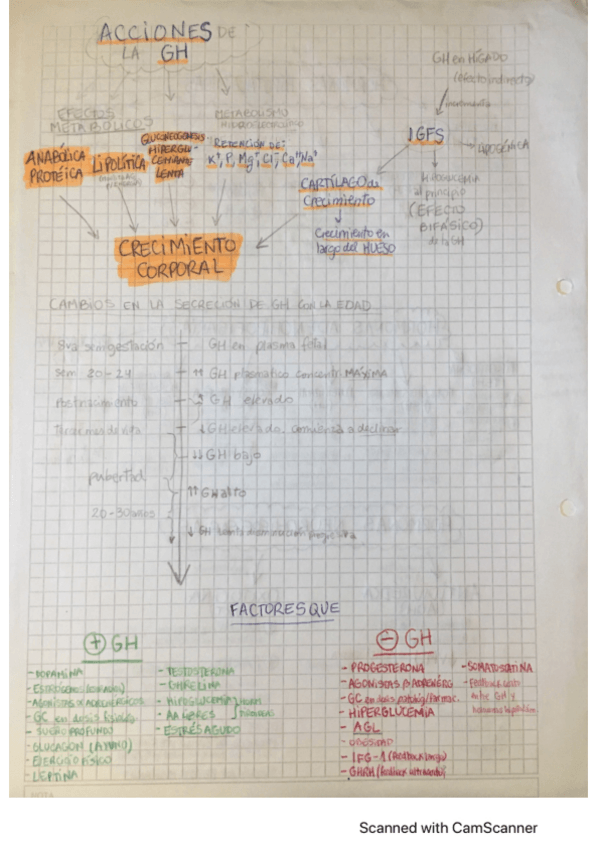 ACCIONES DE
LA GH
GH en HÍGADO
(efecto indirecto)
EFECTOS
METABÓLICOS
METABOLISMO
IGFS
ANABÓLICA
PROTÉICA
LIPOLÍTICA
GLUCONEOGÉNESIS
HIPERGLU-
CEMIANTE
LENTA
RETENCIÓN DE:
K⁺, P, Mg⁺, Cl⁻, Ca⁺⁺, Na⁺
LIPOGÉNICA
CARTÍLAGO de
Crecimiento
al principio
(EFECTO
BIFÁSICO)
de la GH
Crecimiento en
largo del HUESO
CRECIMIENTO
CORPORAL
CAMBIOS EN LA SECRECIÓN DE GH CON LA EDAD
8va sem gestación GH en plasma fetal
sem 20-24 ↑↑ GH plasmático concentr. MÁXIMA
Postnacimiento GH elevado
↓ GH elevado, comienza a declinar
↓↓ GH bajo
pubertad
↑↑ GH alto
20-30 años
↓ GH lenta disminución progresiva
FACTORES QUE
+ GH
- DOPAMINA
- AGONISTAS α ADRENÉRGICOS
- GC en dosis
- SUEÑO PROFUNDO
- GLUCAGON (AYUNO)
- EJERCICIO FÍSICO
- LEPTINA
- TESTOSTERONA
- GHRELINA
- HIPOGLUCEMIA
- AA LIBRES
- ESTRÉS AGUDO
- GH
- PROGESTERONA
- AGONISTAS β ADRENÉRG
- GC en dosis patológ/farmac.
- HIPERGLUCEMIA
- AGL
- OBESIDAD
- IFG-1 (feedback largo)
- GHRH (feedback ultracorto)
- SOMATOSTATINA
- Feedback corto
entre GH y
Scanned with CamScanner